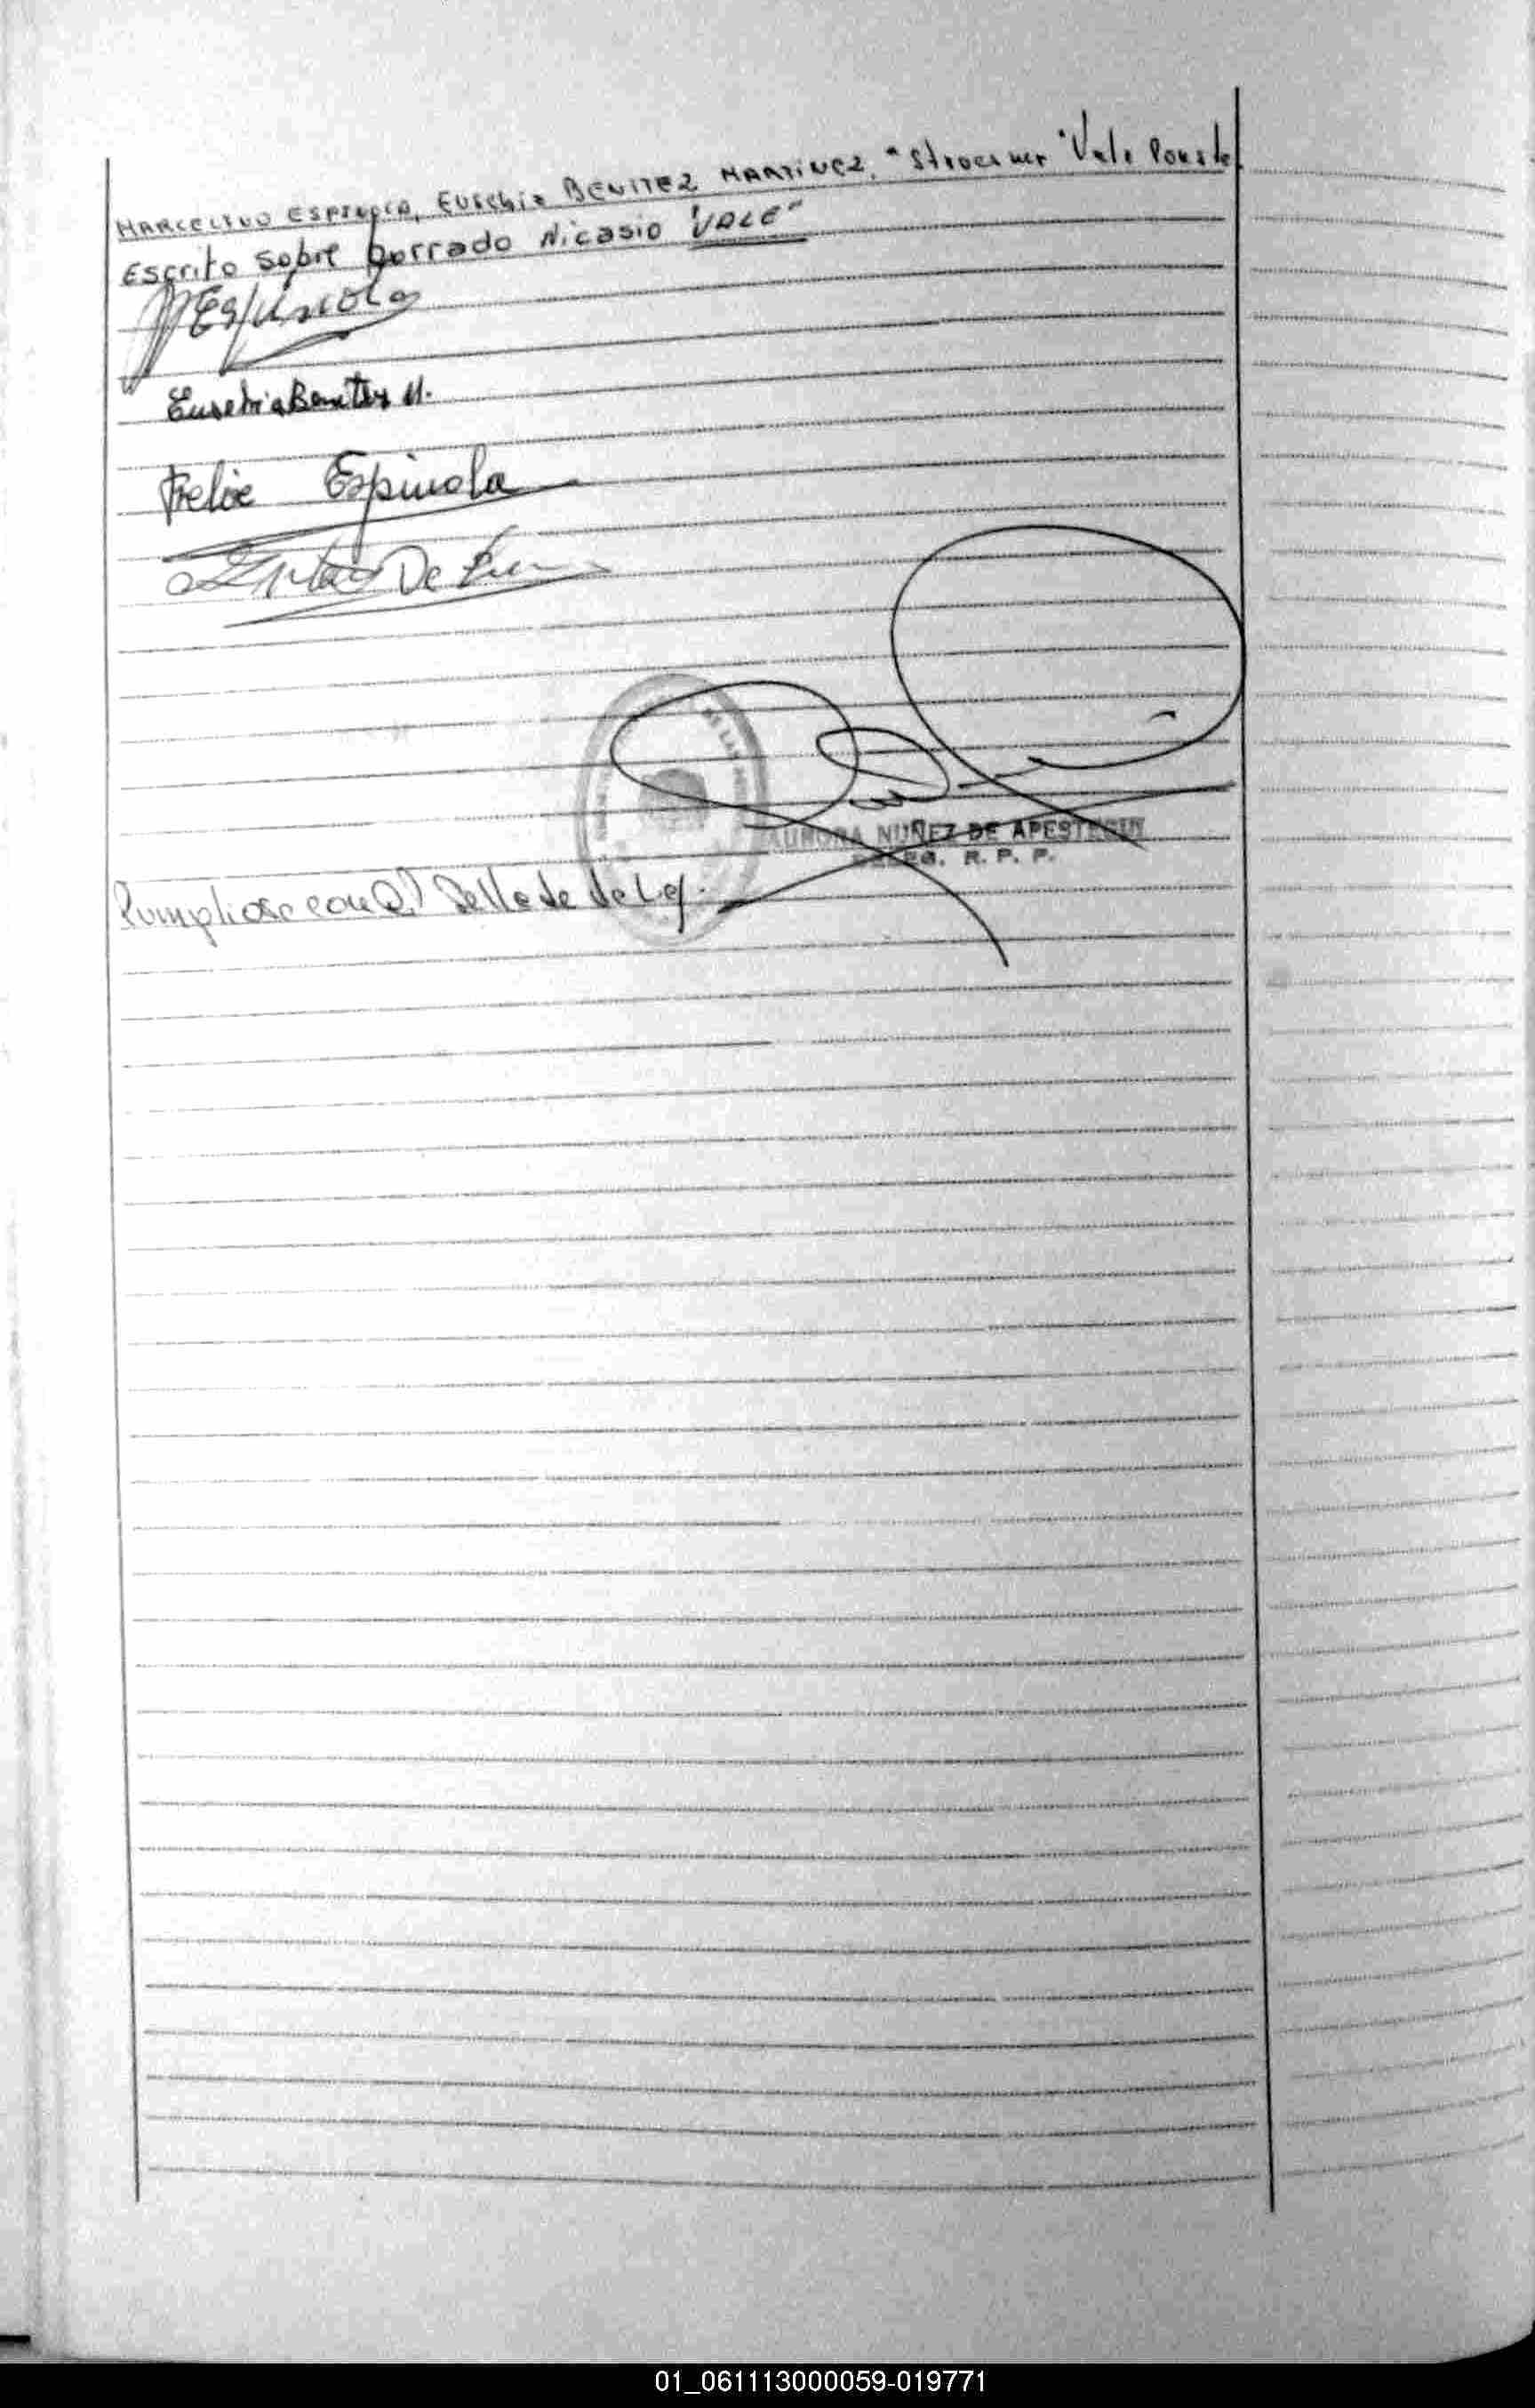 MARCELINO ESPINOLA, Eusebia BENITEZ MARTINEZ, "Stroesner "Vale Conste.
Escrito sobre borrado Nicasio "VALE"
Espinola
Eusebia Benitez M.
Felix Espinola
De
AURORA NUÑEZ DE APESTEGUI
R. P. P.
Cumpliose con el Sello de de Ley.
01_061113000059-019771